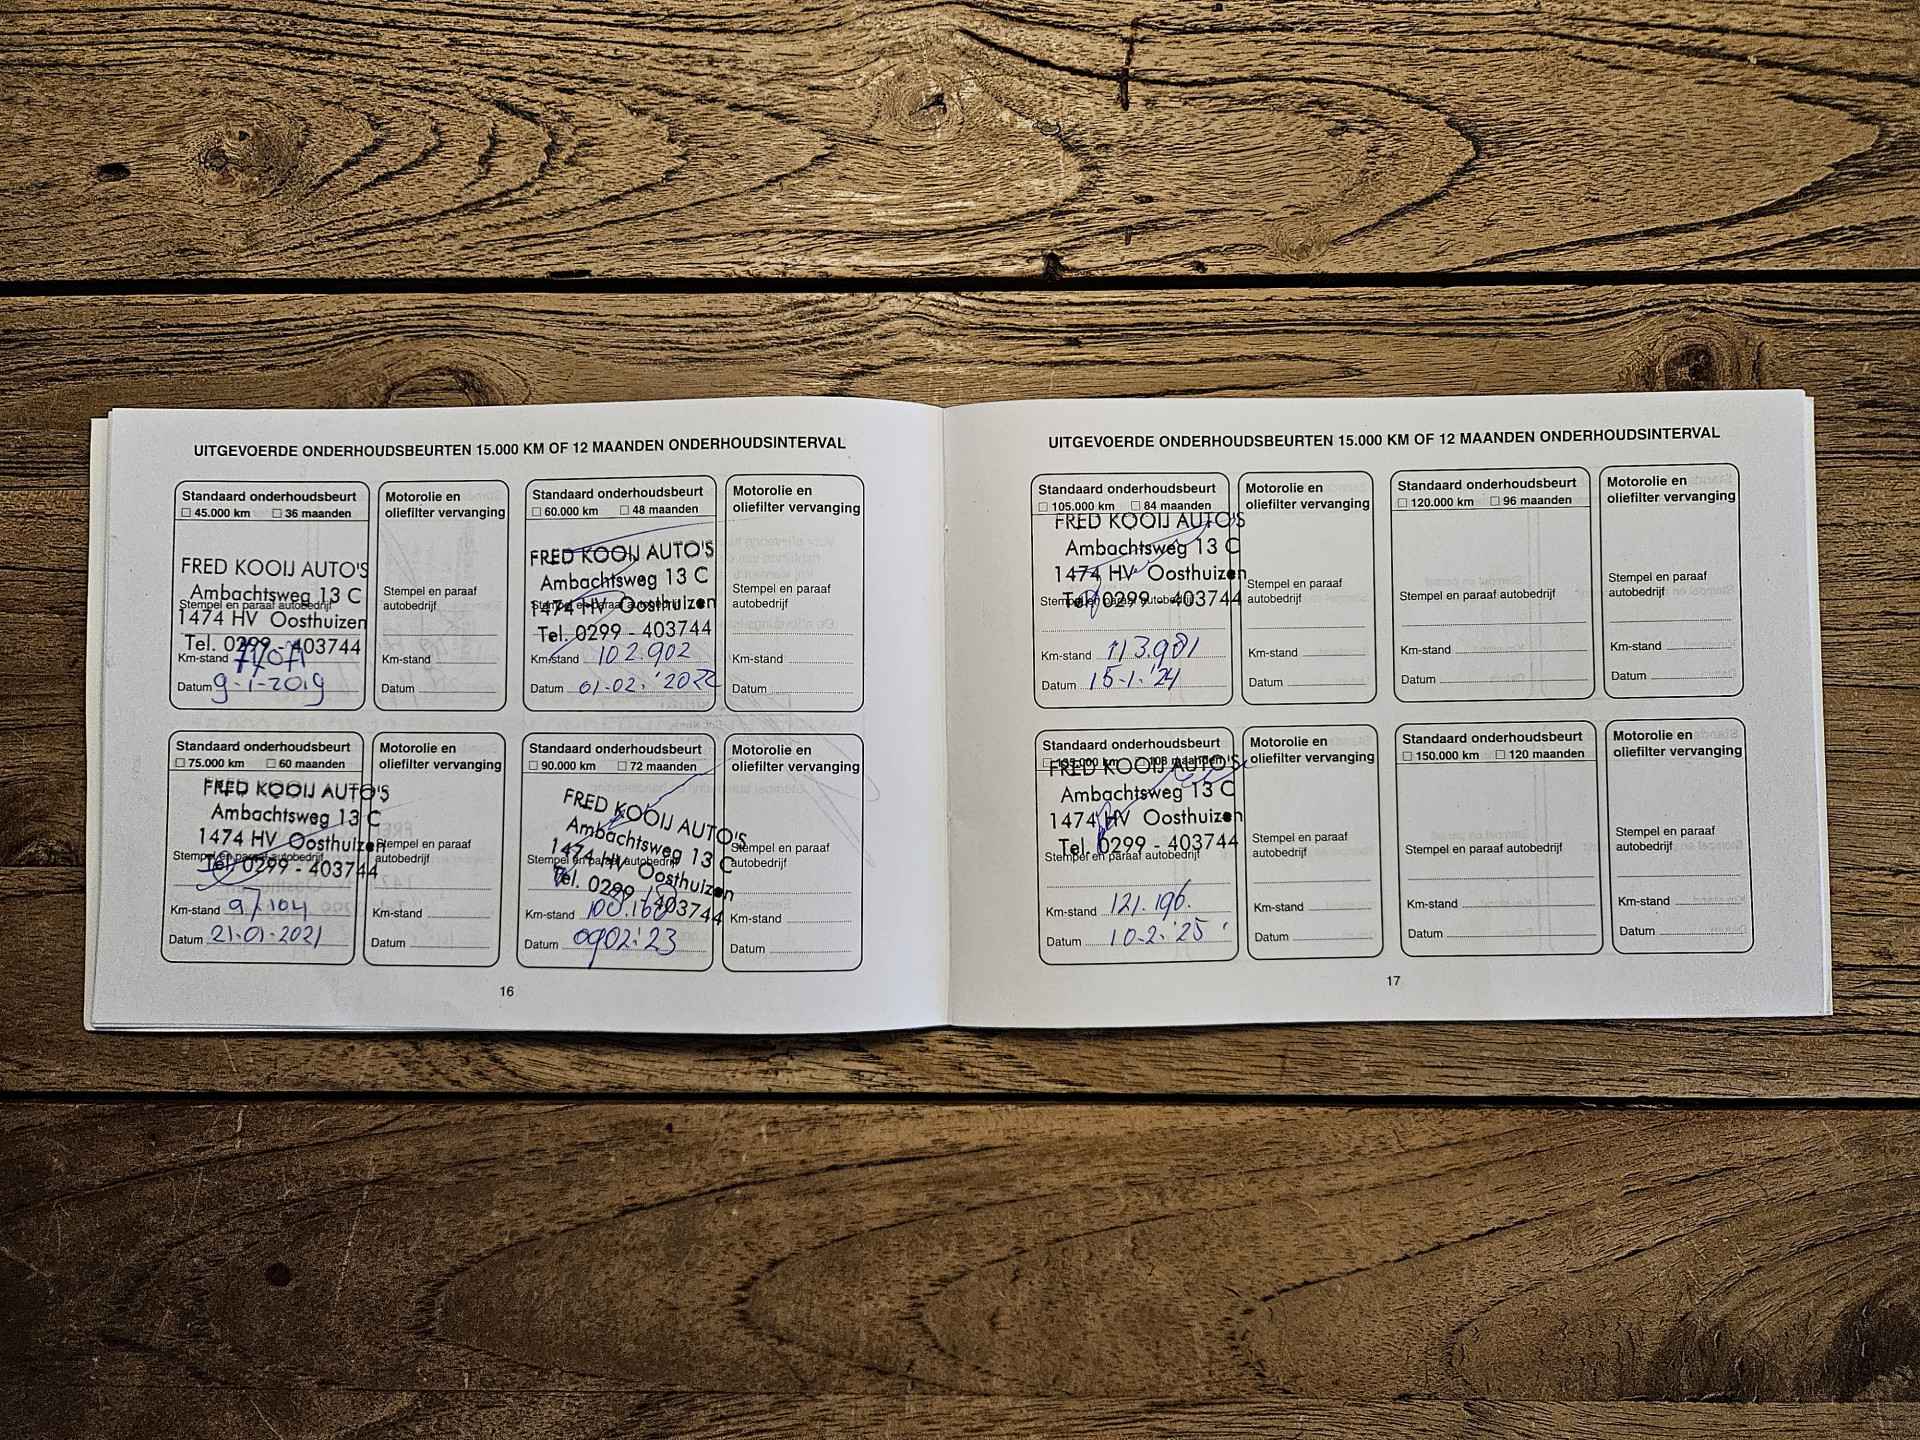 UITGEVOERDE ONDERHOUDSBEURTEN 15.000 KM OF 12 MAANDEN ONDERHOUDSINTERVAL
Standaard onderhoudsbeurt
45.000 km 36 maanden
FRED KOOIJ AUTO'S
Ambachtsweg 13 C
Stempel en paraaf autobedrijf
1474 HV Oosthuizen
Tel. 0299 - 403744
Km-stand 71071
Datum 9-1-2019
Motorolie en
oliefilter vervanging
Stempel en paraaf
autobedrijf
Km-stand
Datum
Standaard onderhoudsbeurt
60.000 km 48 maanden
FRED KOOIJ AUTO'S
Ambachtsweg 13 C
Stempel en paraaf autobedrijf
1474 HV Oosthuizen
Tel. 0299 - 403744
Km-stand 102.902
Datum 01-02-'2022
Motorolie en
oliefilter vervanging
Stempel en paraaf
autobedrijf
Km-stand
Datum
Standaard onderhoudsbeurt
75.000 km 60 maanden
FRED KOOIJ AUTO'S
Ambachtsweg 13 C
1474 HV Oosthuizen
Stempel en paraaf autobedrijf
Tel. 0299 - 403744
Km-stand 97104
Datum 21-01-2021
Motorolie en
oliefilter vervanging
Stempel en paraaf
autobedrijf
Km-stand
Datum
Standaard onderhoudsbeurt
90.000 km 72 maanden
FRED KOOIJ AUTO'S
Ambachtsweg 13 C
1474 HV Oosthuizen
Stempel en paraaf autobedrijf
Tel. 0299 - 403744
Km-stand 108.160
Datum 0902'23
Motorolie en
oliefilter vervanging
Stempel en paraaf
autobedrijf
Km-stand
Datum
16
UITGEVOERDE ONDERHOUDSBEURTEN 15.000 KM OF 12 MAANDEN ONDERHOUDSINTERVAL
Standaard onderhoudsbeurt
105.000 km 84 maanden
FRED KOOIJ AUTO'S
Ambachtsweg 13 C
1474 HV Oosthuizen
Stempel en paraaf autobedrijf
Tel. 0299 - 403744
Km-stand 113.981
Datum 15-1-'24
Motorolie en
oliefilter vervanging
Stempel en paraaf
autobedrijf
Km-stand
Datum
Standaard onderhoudsbeurt
120.000 km 96 maanden
Stempel en paraaf autobedrijf
Km-stand
Datum
Motorolie en
oliefilter vervanging
Stempel en paraaf
autobedrijf
Km-stand
Datum
Standaard onderhoudsbeurt
135.000 km 108 maanden
FRED KOOIJ AUTO'S
Ambachtsweg 13 C
1474 HV Oosthuizen
Tel. 0299 - 403744
Stempel en paraaf autobedrijf
Km-stand 121.196.
Datum 10-2-'25
Motorolie en
oliefilter vervanging
Stempel en paraaf
autobedrijf
Km-stand
Datum
Standaard onderhoudsbeurt
150.000 km 120 maanden
Stempel en paraaf autobedrijf
Km-stand
Datum
Motorolie en
oliefilter vervanging
Stempel en paraaf
autobedrijf
Km-stand
Datum
17